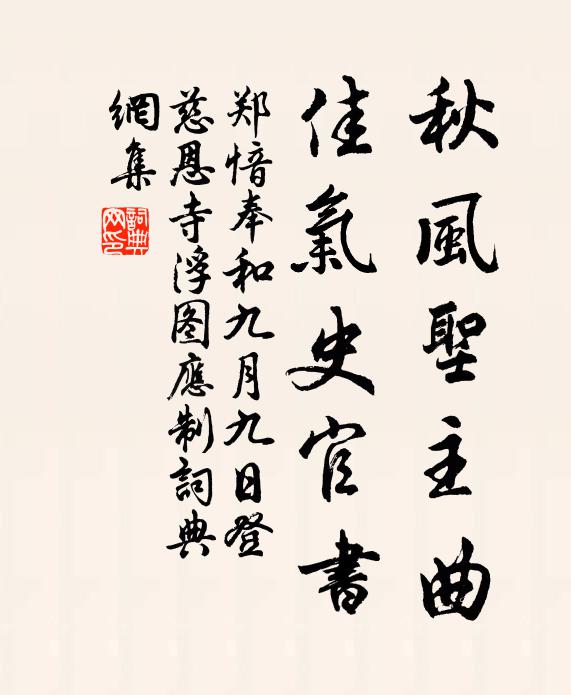 秋風聖主曲
佳氣史官書
郑愔奉和九月九日登
慈恩寺浮图應制詞典
網集
詞典
网印